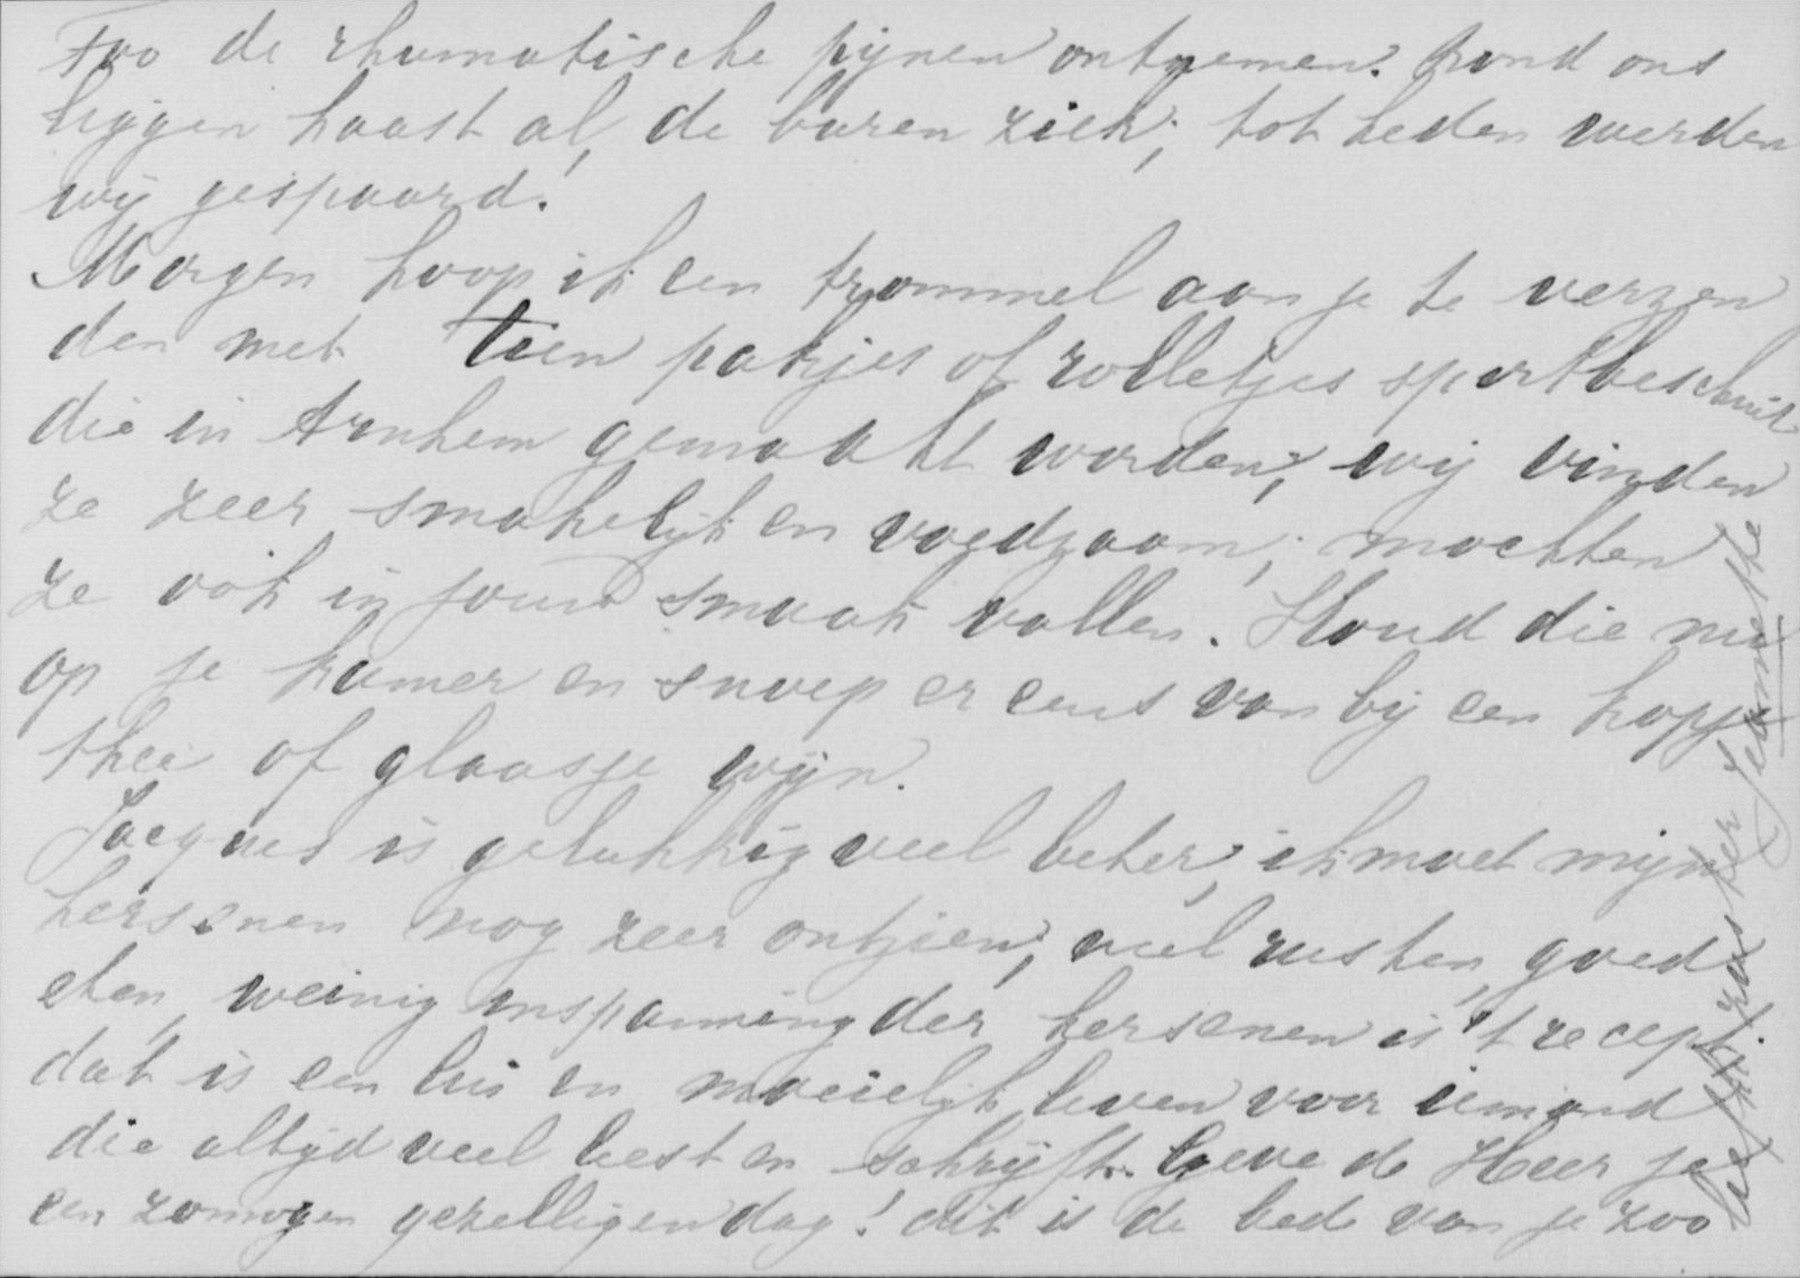 zoo de rhumatische pijnen ontnemen. Rond ons
liggen haast al, de buren ziek; tot heden werden
wij gespaard.
Morgen hoop ik een trommel aan je te verzen
den met tien pakjes of rolletjes sportbeschuit
die in Arnhem gemaakt worden; wij vinden
ze zeer smakelijk en voedzaam; mochten
ze ook in jouw smaak vallen. Houd die nu
op je kamer en snoep er eens van bij een kopje
thee of glaasje wijn.
Jacques is gelukkig veel beter; ik moet mijn
hersenen nog zeer ontzien; veel rusten, goed
eten, weinig inspanning der hersenen is 't recept.
dat is een en moeielijk leven voor iemand
die altijd veel leest en schrijft. Geve de Heer je
een zonnigen gezelligen dag! dit is de bede van je zoo
liefh. zuster Jeannette